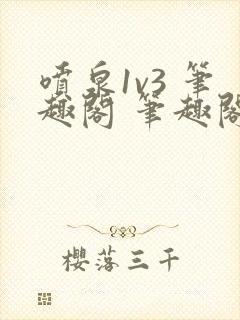 噴泉1v3 筆
趣閣 筆趣閣
櫻落三千